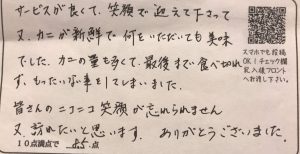 サービスが良くて、笑顔で迎えて下さって
又、カニが新鮮で何をいただいても美味
でした。カニの量も多くて、最後まで食べ切れ
ず、もったいない事をしてしまいました。
皆さんのニコニコ笑顔が忘れられません
又、訪れたいと思います。ありがとうございました。
10点満点で 点
スマホでも投稿
OK！チェック欄
記入後フロント
へお渡し下さい。